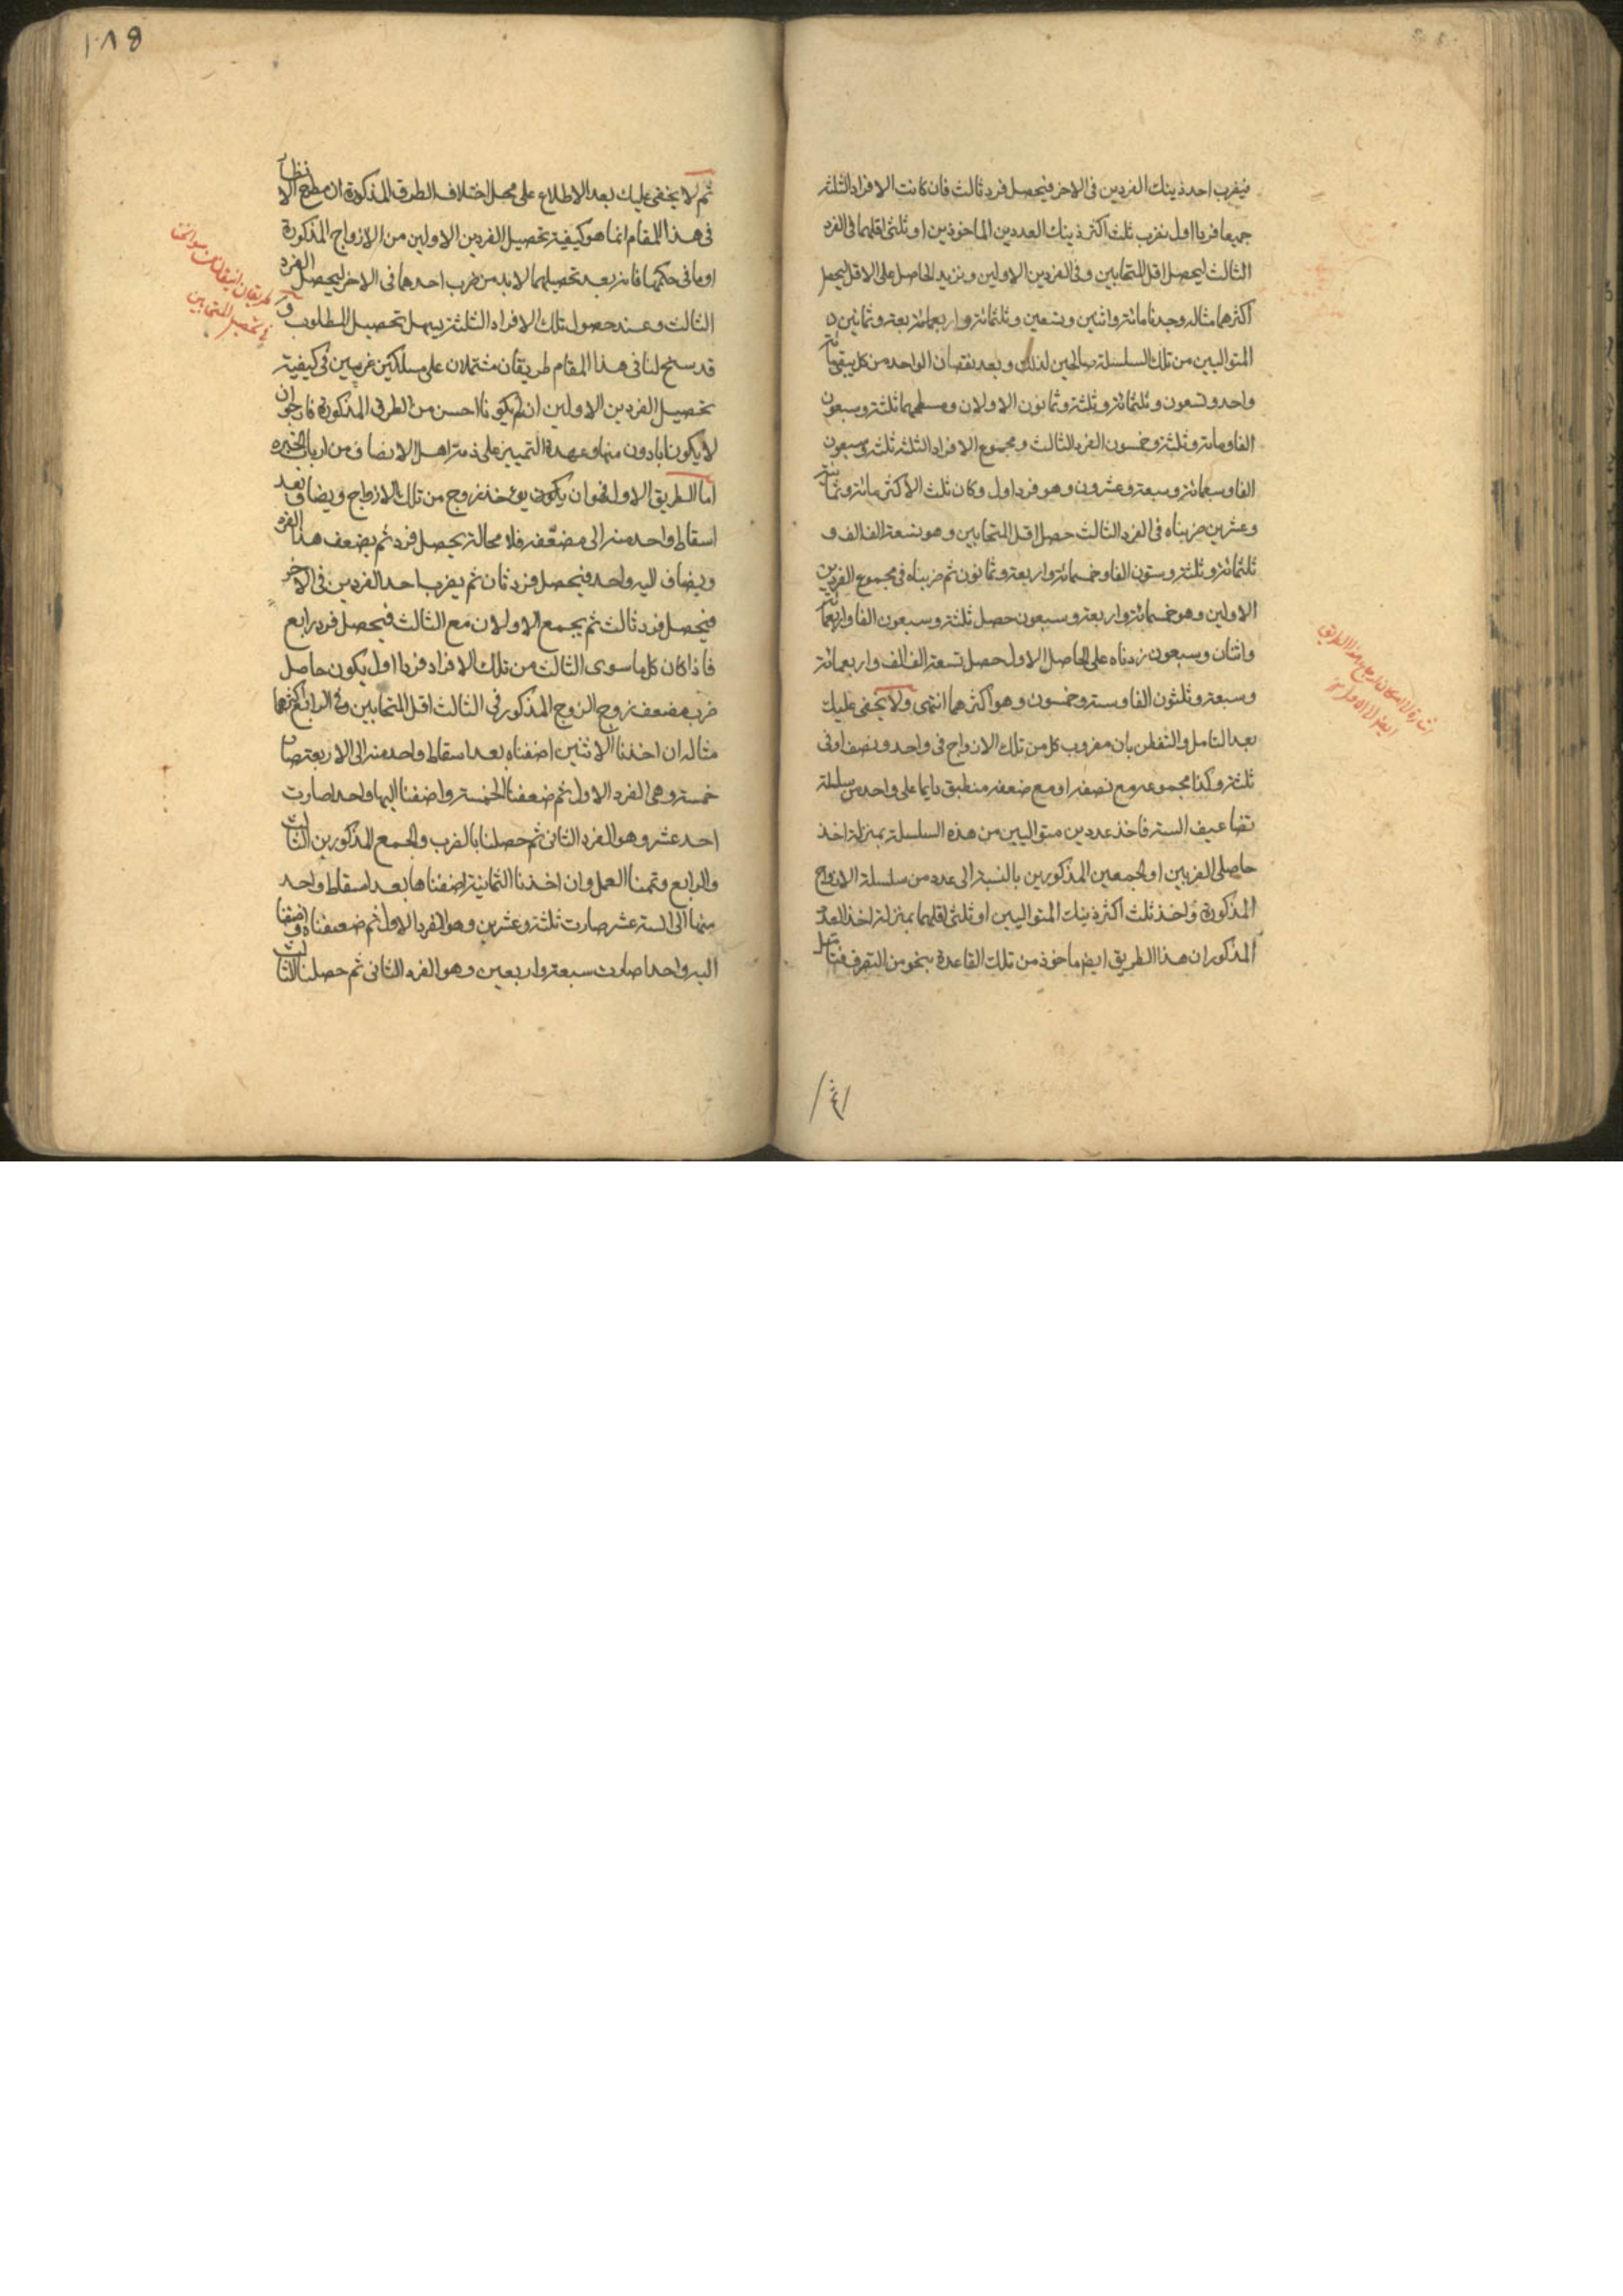 فيضرب احد ذينك الفردين فى الاخر فيحصل فرد ثالث فان كانت الافراد الثلثة
جميعا فردا اول نضرب ثلث اكثر ذينك العددين الماخوذين او ثلثى اقلهما فى الفرد
الثالث ليحصل اقل المتحابين وفى الفردين الاولين ونزيد الحاصل على الاقل ليحصل
اكثرهما مثاله وجدنا مائة واثنين وتسعين وثلثمائة واربعمائة بعة وثمانين
المتواليين من تلك السلسلة صالحين لذلك وبعد نقصان الواحد من كل يبقى مائة
واحد وتسعون وثلثمائة وثلثة وثمانون الاولان ومسطحهما ثلثة وسبعون
الفا ومائة وثلثة وخمسون الفرد الثالث ومجموع الافراد الثلثة ثلثة وسبعون
الفا وسبعمائة وسبعة وعشرون وهو فرد اول وكان ثلث الاكثر مائة وثمانية
وعشرين ضربناه فى الفرد الثالث حصل اقل المتحابين وهو تسعة الف الف و
ثلثمائة وثلثة وستون الفا وخمسمائة واربعة وثمانون ثم ضربناه فى مجموع الفردين
الاولين وهو خمسمائة واربعة وسبعون حصل ثلثة وسبعون الفا واربعمائة
واثنان وسبعون زدناه على الحاصل الاول حصل تسعة الف الف واربعمائة
وسبعة وثلثون الفا وستة وخمسون وهو اكثرهما انتهى ولا يخفى عليك
بعد التامل والتفطن بان مضروب كل من تلك الازواج فى واحد ونصف او فى
ثلثة وكذا مجموعه مع نصفه او مع ضعفه منطبق دايما على واحد من سلسلة
تضاعيف الستة فاخذ عددين متواليين من هذه السلسلة بمنزلة اخذ
حاصلى الضربين او الجمعين المذكورين بالنسبة الى عدد من سلسلة الازواج
المذكورة واخذ ثلث اكثر ذينك المتواليين او ثلثى اقلهما بمنزلة اخذ العدد
المذكور ان هذا الطريق ايضا ماخوذ من تلك القاعدة بنحو من التصرف فتامل
١٨٥
ثم لا يخفى عليك بعد الاطلاع على محل اختلاف الطرق المذكورة ان مطمح الانظار
فى هذا المقام انما هو كيفية تحصيل الفردين الاولين من الازواج المذكورة
او ما فى حكمها فانه بعد تحصيلهما لا بد من ضرب احدهما فى الاخر ليحصل الفرد
الثالث وعند حصول تلك الافراد الثلثة يسهل تحصيل المطلوب و
قد سنح لنا فى هذا المقام طريقان مشتملان على مسلكين غريبين فى كيفية
تحصيل الفردين الاولين ان لم يكونا احسن من الطرق المذكورة فارجو ان
لا يكونا بادون منها وعهدة التمييز على ذمة اهل الانصاف من ارباب الخبرة
اما الطريق الاول فهو ان يكون يوخذ زوج من تلك الازواج ويضاف بعد
اسقاط واحد منه الى مضعّفه فلا محالة يحصل فرد ثم يضعف هذا الفرد
ويضاف اليه واحد فيحصل فرد ثان ثم يضرب احد الفردين فى الاخر
فيحصل فرد ثالث ثم يجمع الاولان مع الثالث فيحصل فرد رابع
فاذا كان كل ما سوى الثالث من تلك الافراد فردا اول يكون حاصل
ضرب مضعف زوج الزوج المذكور فى الثالث اقل المتحابين وفى الرابع اكثرهما
مثاله ان اخذنا الاثنين اضفناه بعد اسقاط واحد منه الى الاربعة صار
خمسة وهى الفرد الاول ثم ضعفنا الخمسة واضفنا اليها واحدا صارت
احد عشر وهو الفرد الثانى ثم حصلنا بالضرب والجمع المذكورين الثالث
والرابع وتممنا العمل وان اخذنا الثمانية اضفناها بعد اسقاط واحد
منها الى الستة عشر صارت ثلثة وعشرين وهو الفرد الاول ثم ضعفناه واضفنا
اليه واحدا صارت سبعة واربعين وهو الفرد الثانى ثم حصلنا الثالث
فى تحصيل المتحابين